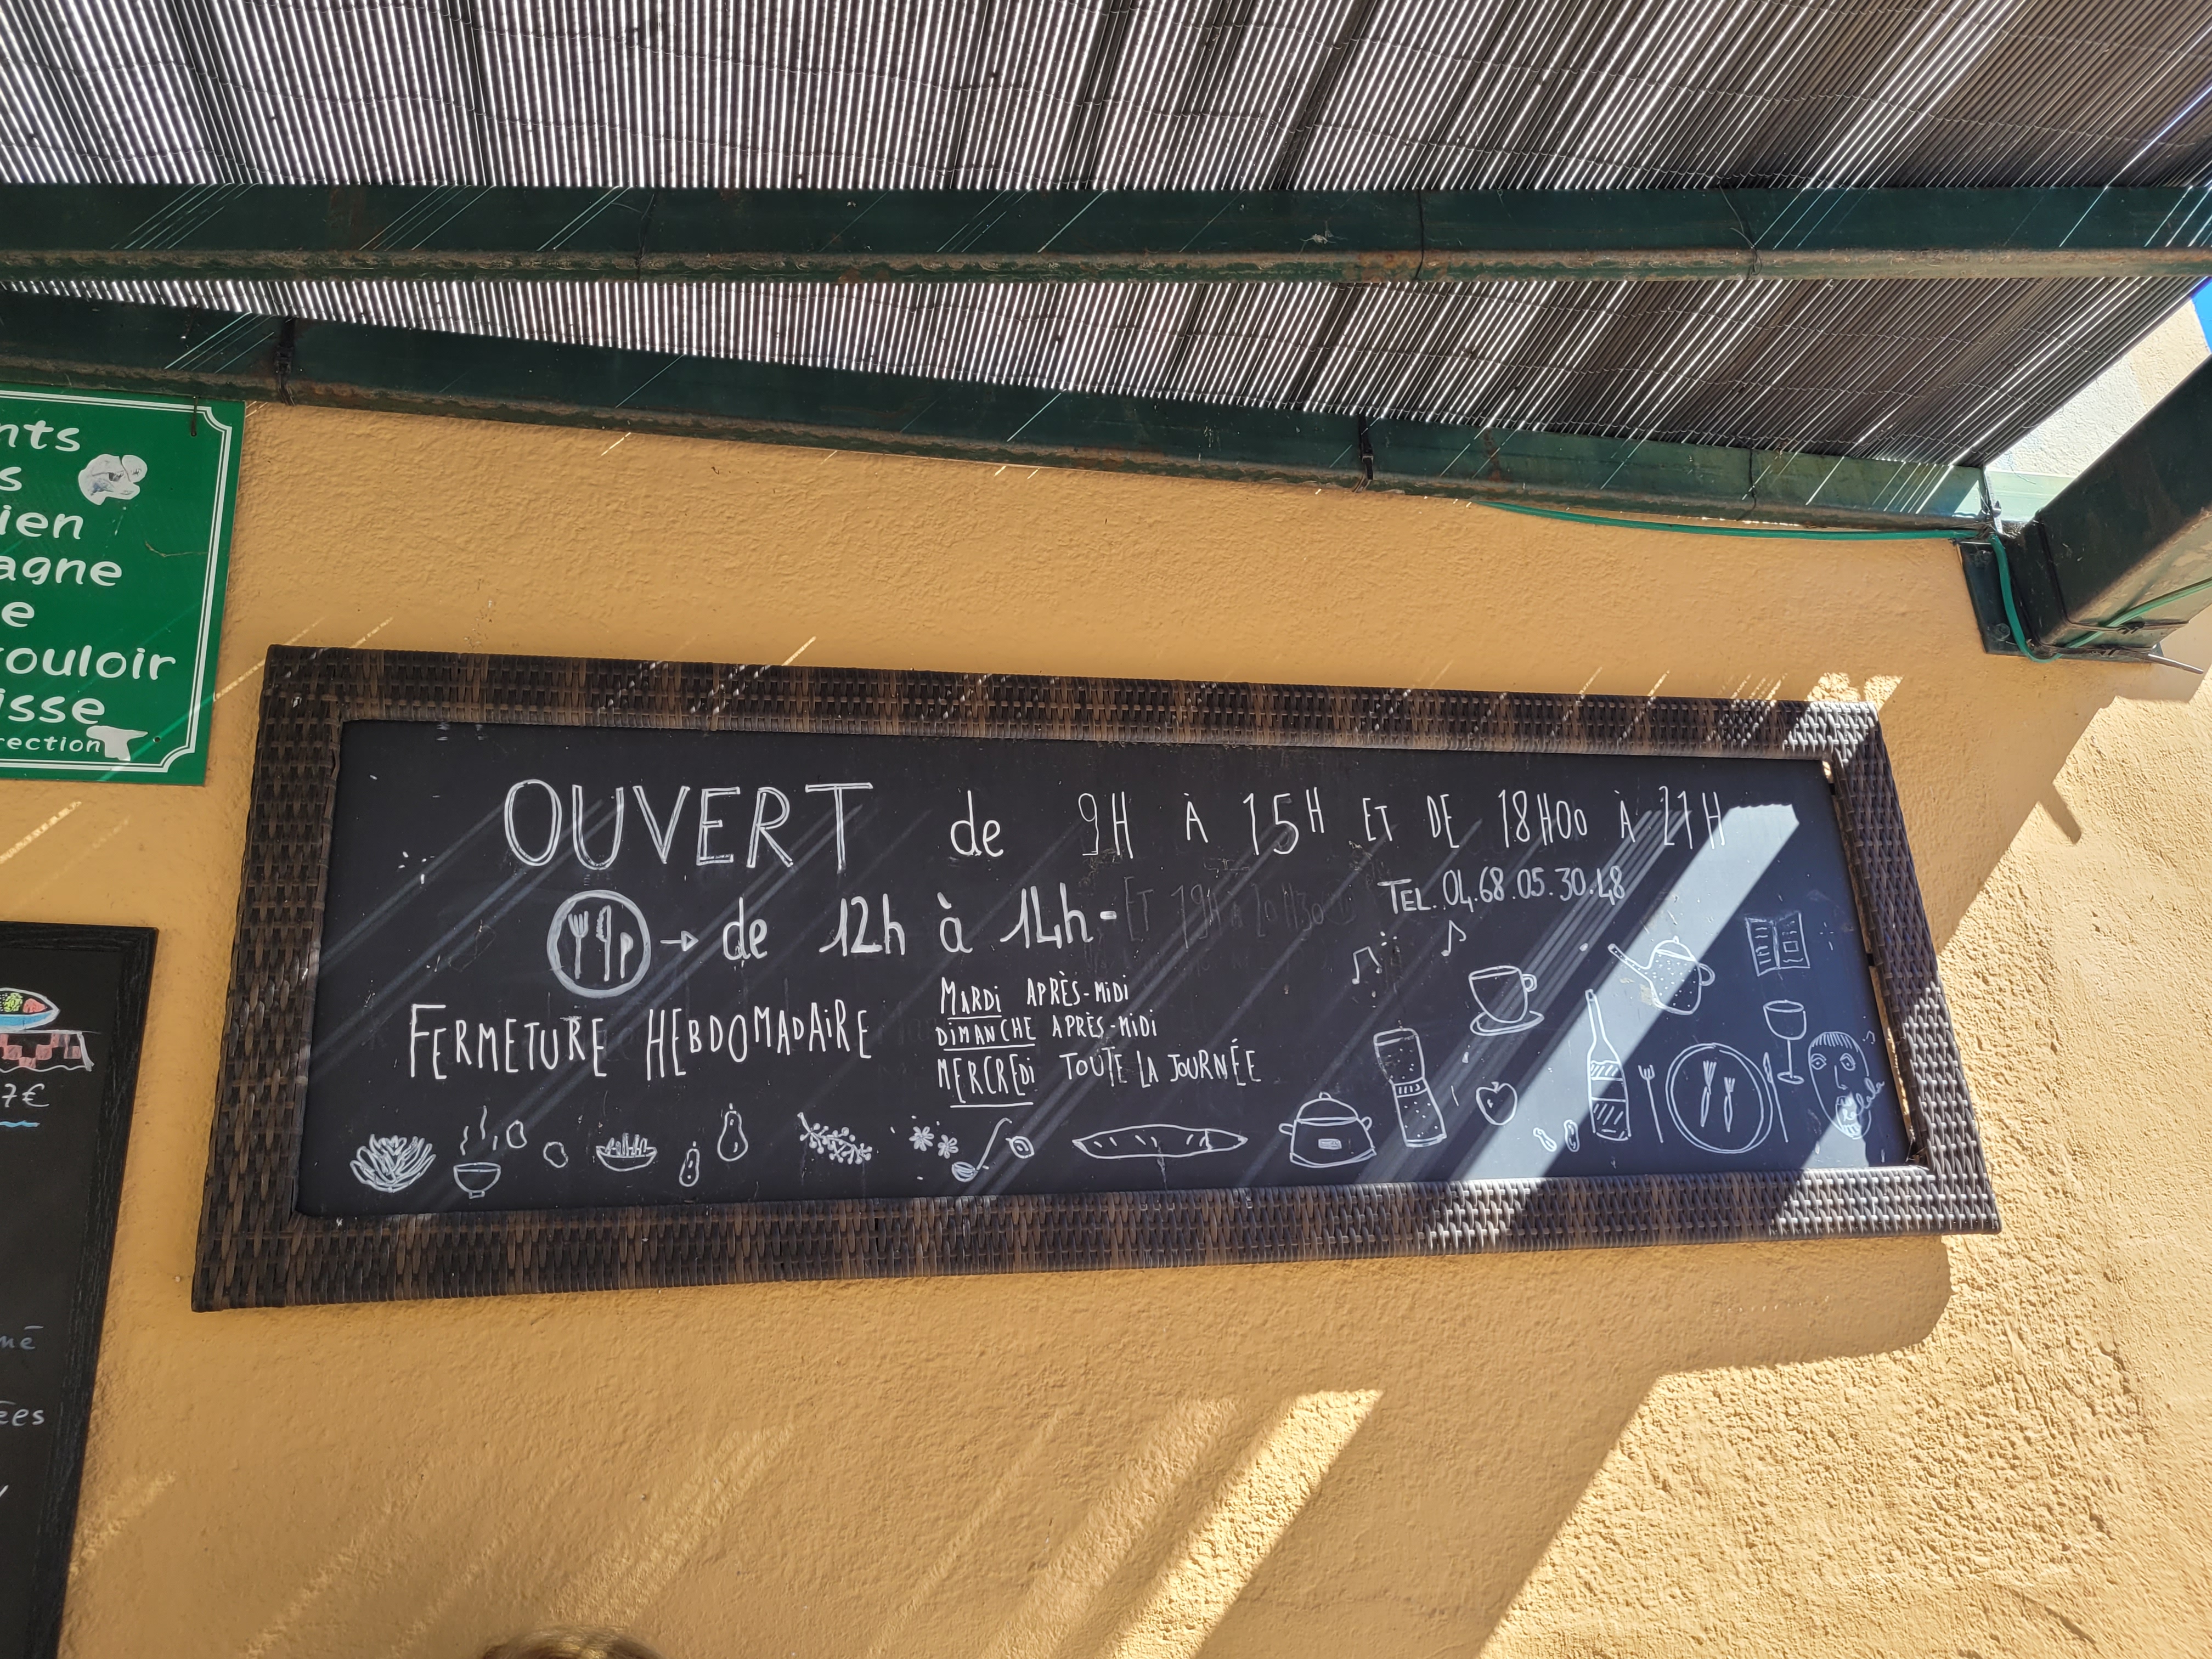 nts
s
ien
agne
e
couloir
isse
rection
7€
né
ées
OUVERT de 9H À 15H ET DE 18H00 À 21H
TEL. 04.68.05.30.48
→ de 12h à 14h - ET 19H à 20H30
FERMETURE HEBDOMADAIRE
MARDI APRÈS-MIDI
DIMANCHE APRÈS-MIDI
MERCREDI TOUTE LA JOURNÉE